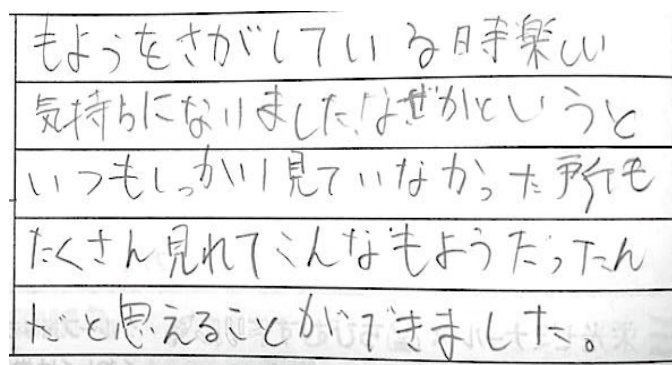 もようをさがしている時楽しい
気持ちになりました!なぜかというと
いつもしっかり見ていなかった所も
たくさん見れてこんなもようだったん
だと思えることができました。